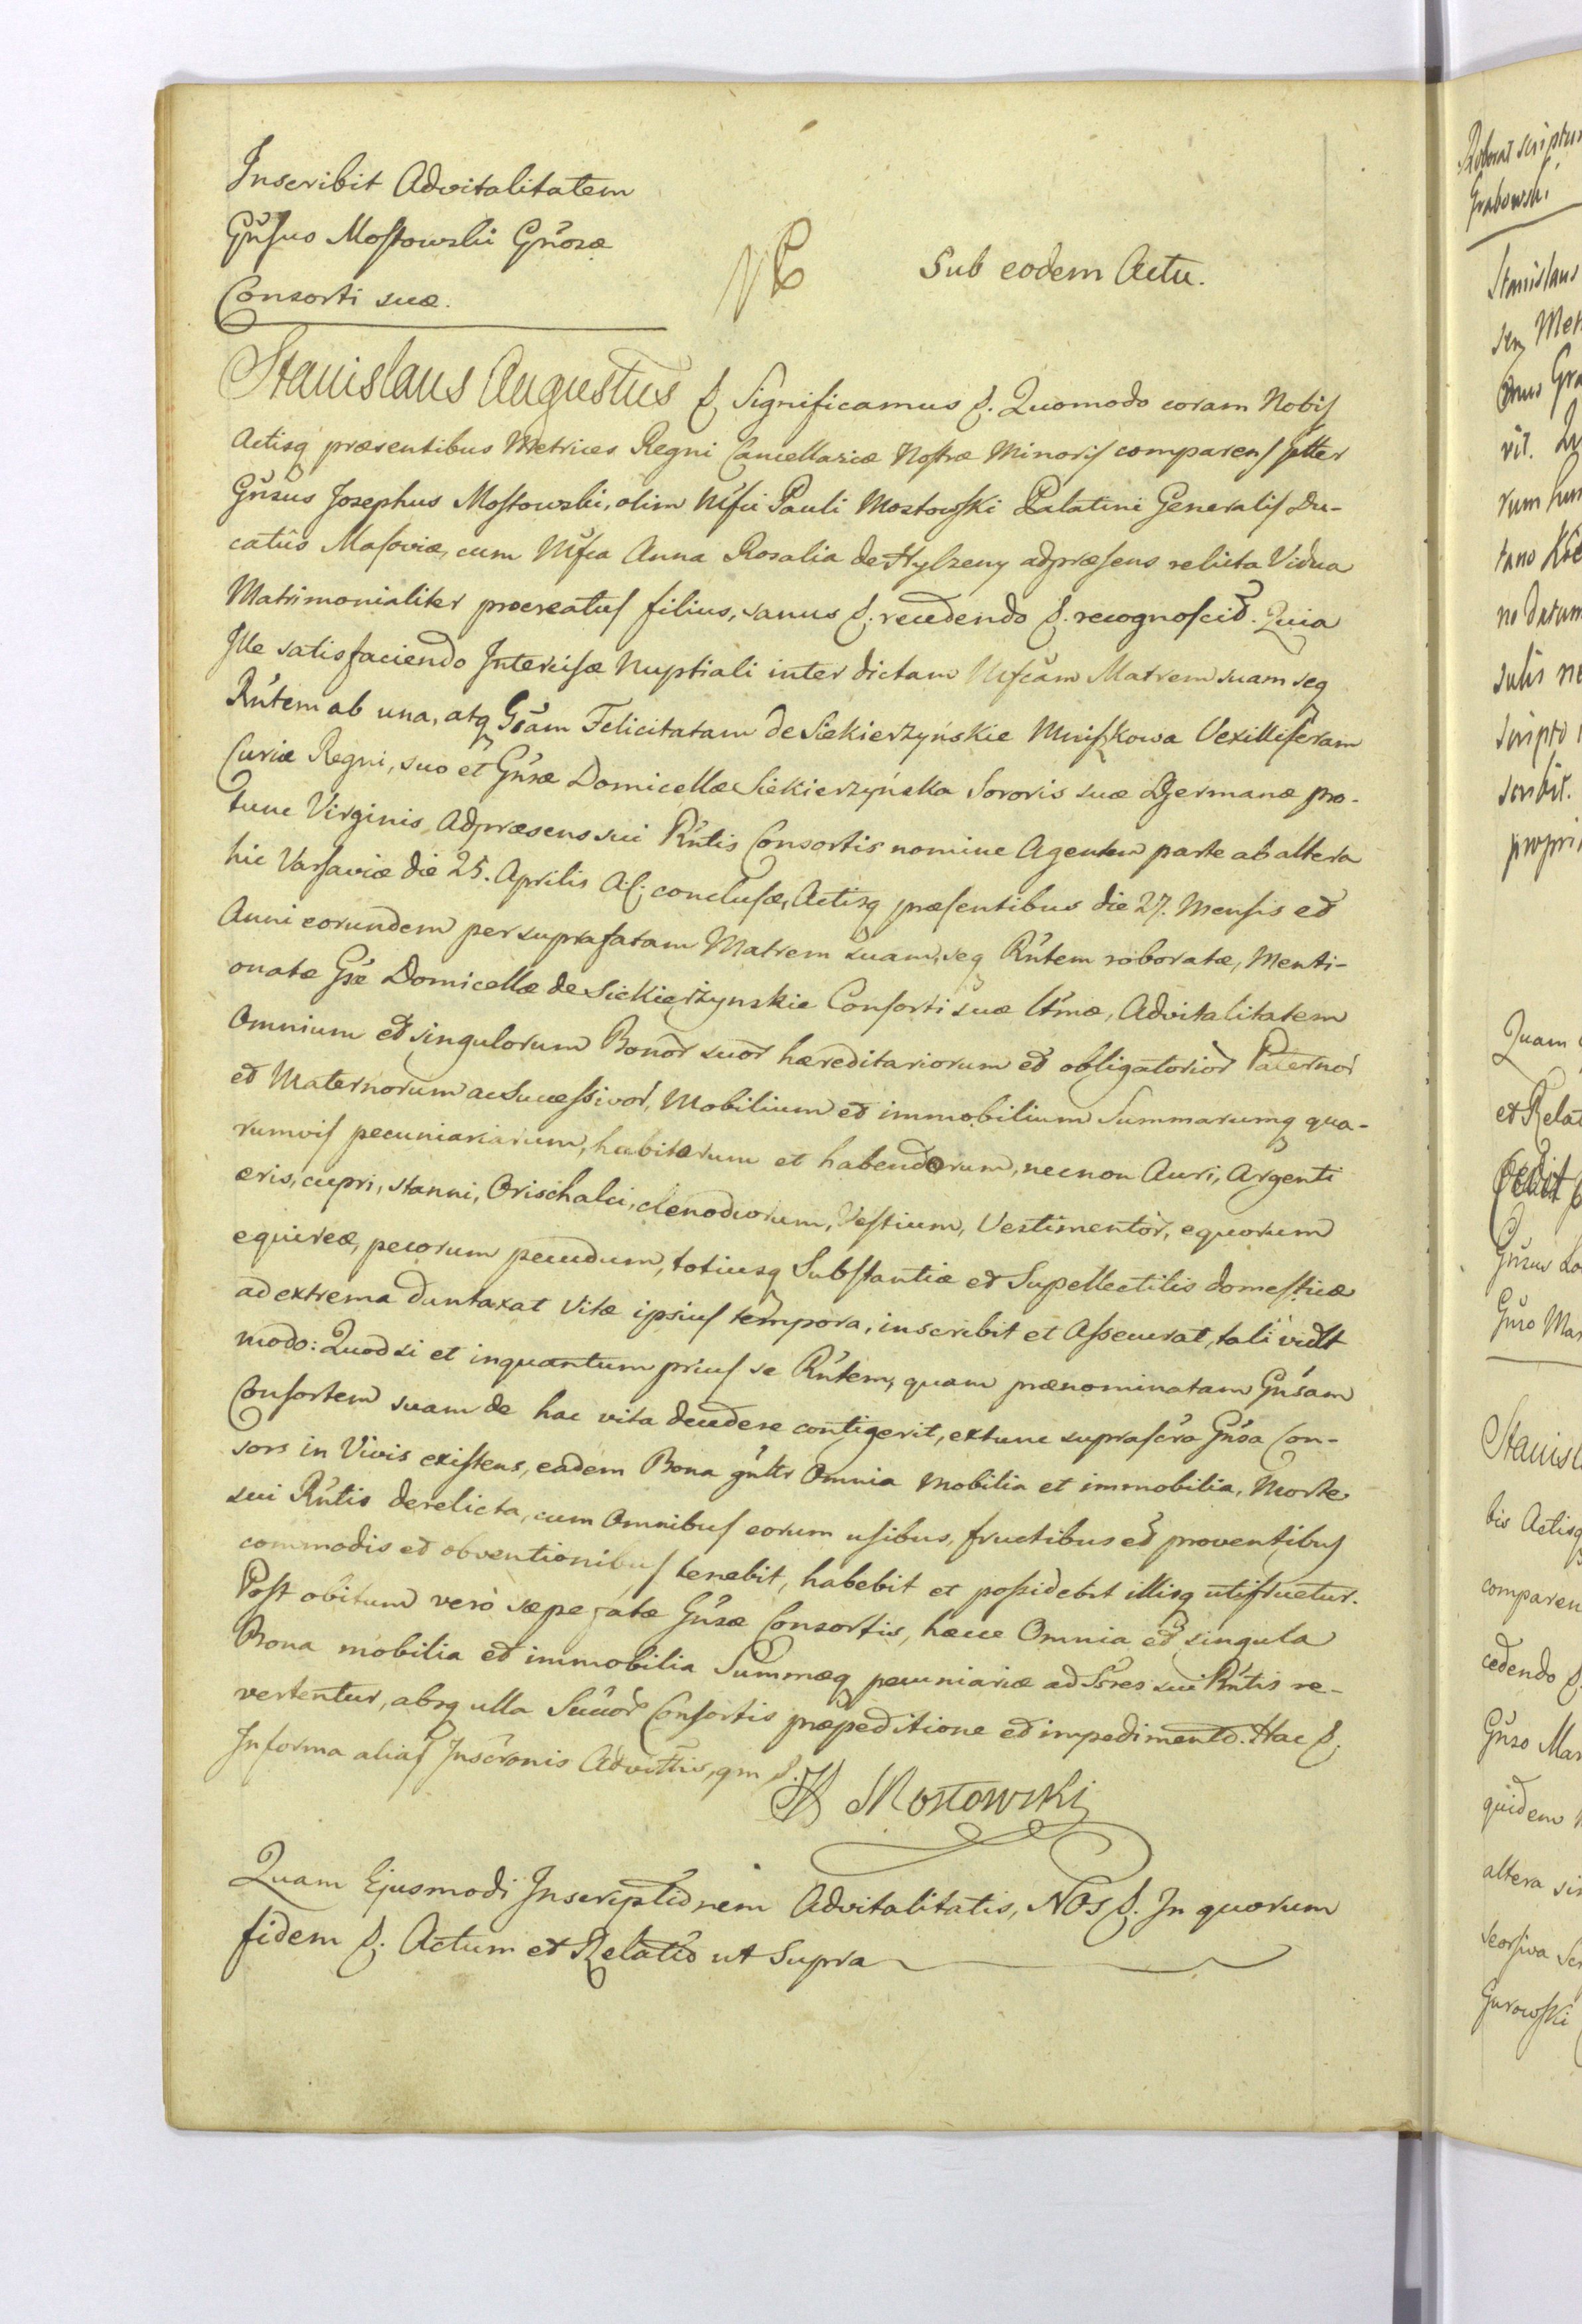 Inscribit Advitalitatem
Gnsus Mostowski Gnosæ
Consorti suæ.
NB
Sub eodem Actu.
Stanislaus Augustus &. Significamus &. Quomodo coram Nobis
Actisq præsentibus Metrices Regni Cancellariæ Nostræ Minoris comparens psltter
Gnsus Josephus Mostowski, olim Mfci Pauli Mostowski Palatini Generalis Du-
catûs Masoviæ, cum Mfca Anna Rosalia de Hylzeny adpræsens relicta Vidua
Matrimonialiter procreatus filius, sanus &. recedendo &. recognoscit. Quia
Ille satisfaciendo Intercisæ Nuptiali inter dictam Mfcam Matrem suam seq
Rntem ab una, atq Gsam Felicitatam de Siekierzyńskie Mniszkowa Vexilliferam
Curiæ Regni, suo et Gnsæ Domicellæ Siekierzyńska Sororis suæ Germanæ pro-
tunc Virginis, Adpræsens sui Rntis Consortis nomine Agentem parte ab altera
hic Varsaviæ die 25. Aprilis A. C. conclusæ, Actisq præsentibus die 27. Mensis et
Anni eorundem per suprafatam Matrem suam, seq Rntem roboratæ, Menti-
onatæ Gsæ Domicellæ de Siekierżynskie Consorti suæ Ltmæ, Advitalitatem
Omnium et singulorum Bonor suor hæreditariorum et obligatorior Paternor
et Maternorum ac Successivor, Mobilium et immobilium Summarumq qua-
rumvis pecuniariarum, habitarum et habendorum, necnon Auri, Argenti
æris, cupri, stanni, Orischalci, clenodiorum, Vestium, Vestimentor, equorum
equireæ, pecorum pecudum, totiusq Substantiæ et Supellectilis domesticæ
ad extrema duntaxat Vitæ ipsius tempora, inscribit et Assecurat, tali vidlt
modo: Quod si et inquantum prius se Rntem, quam prænominatam Gnsam
Consortem suam de hac vita decedere contigerit, extunc suprascra Gnsa Con-
sors in Vivis existens, eadem Bona gnltr Omnia Mobilia et immobilia, Morte
sui Rntis derelicta, cum Omnibus eorum usibus, fructibus et proventibus
commodis et obventionibus tenebit, habebit et possidebit illisq utifruetur.
Post obitum verò sæpefatæ Gnsæ Consortis, hæcce Omnia et singula
Bona mobilia et immobilia Summæq pecuniariæ ad Scres sui Rntis re-
vertentur, absq ulla Succor Consortis præpeditione et impedimento. Hac &.
In forma alias Inscronis Advittis, qm &.
JB Mostowski
Quam Ejusmodi Inscriptionem Advitalitatis, NOs &. In quorum
fidem &. Actum et Relatio ut Supra